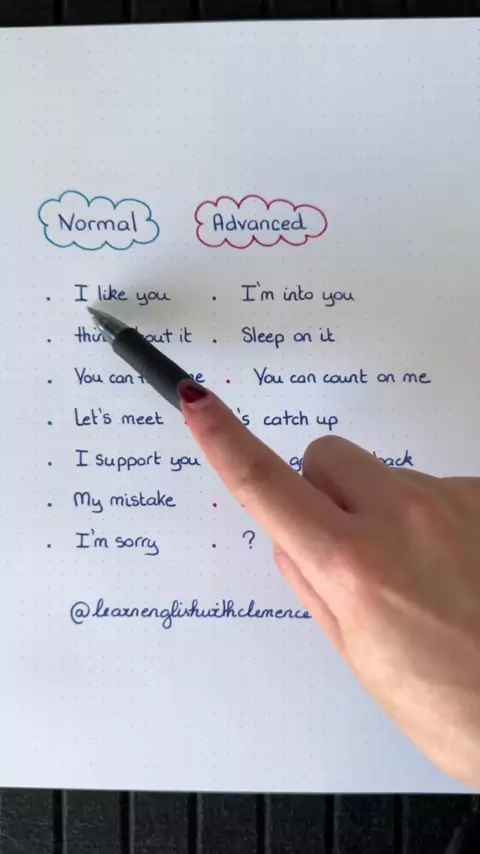 Normal Advanced
. I like you . I'm into you
. it . Sleep on it
. You can . You can count on me
. Let's meet catch up
. I support you
. My mistake .
. I'm sorry . ?
@learnenglishwithclemence